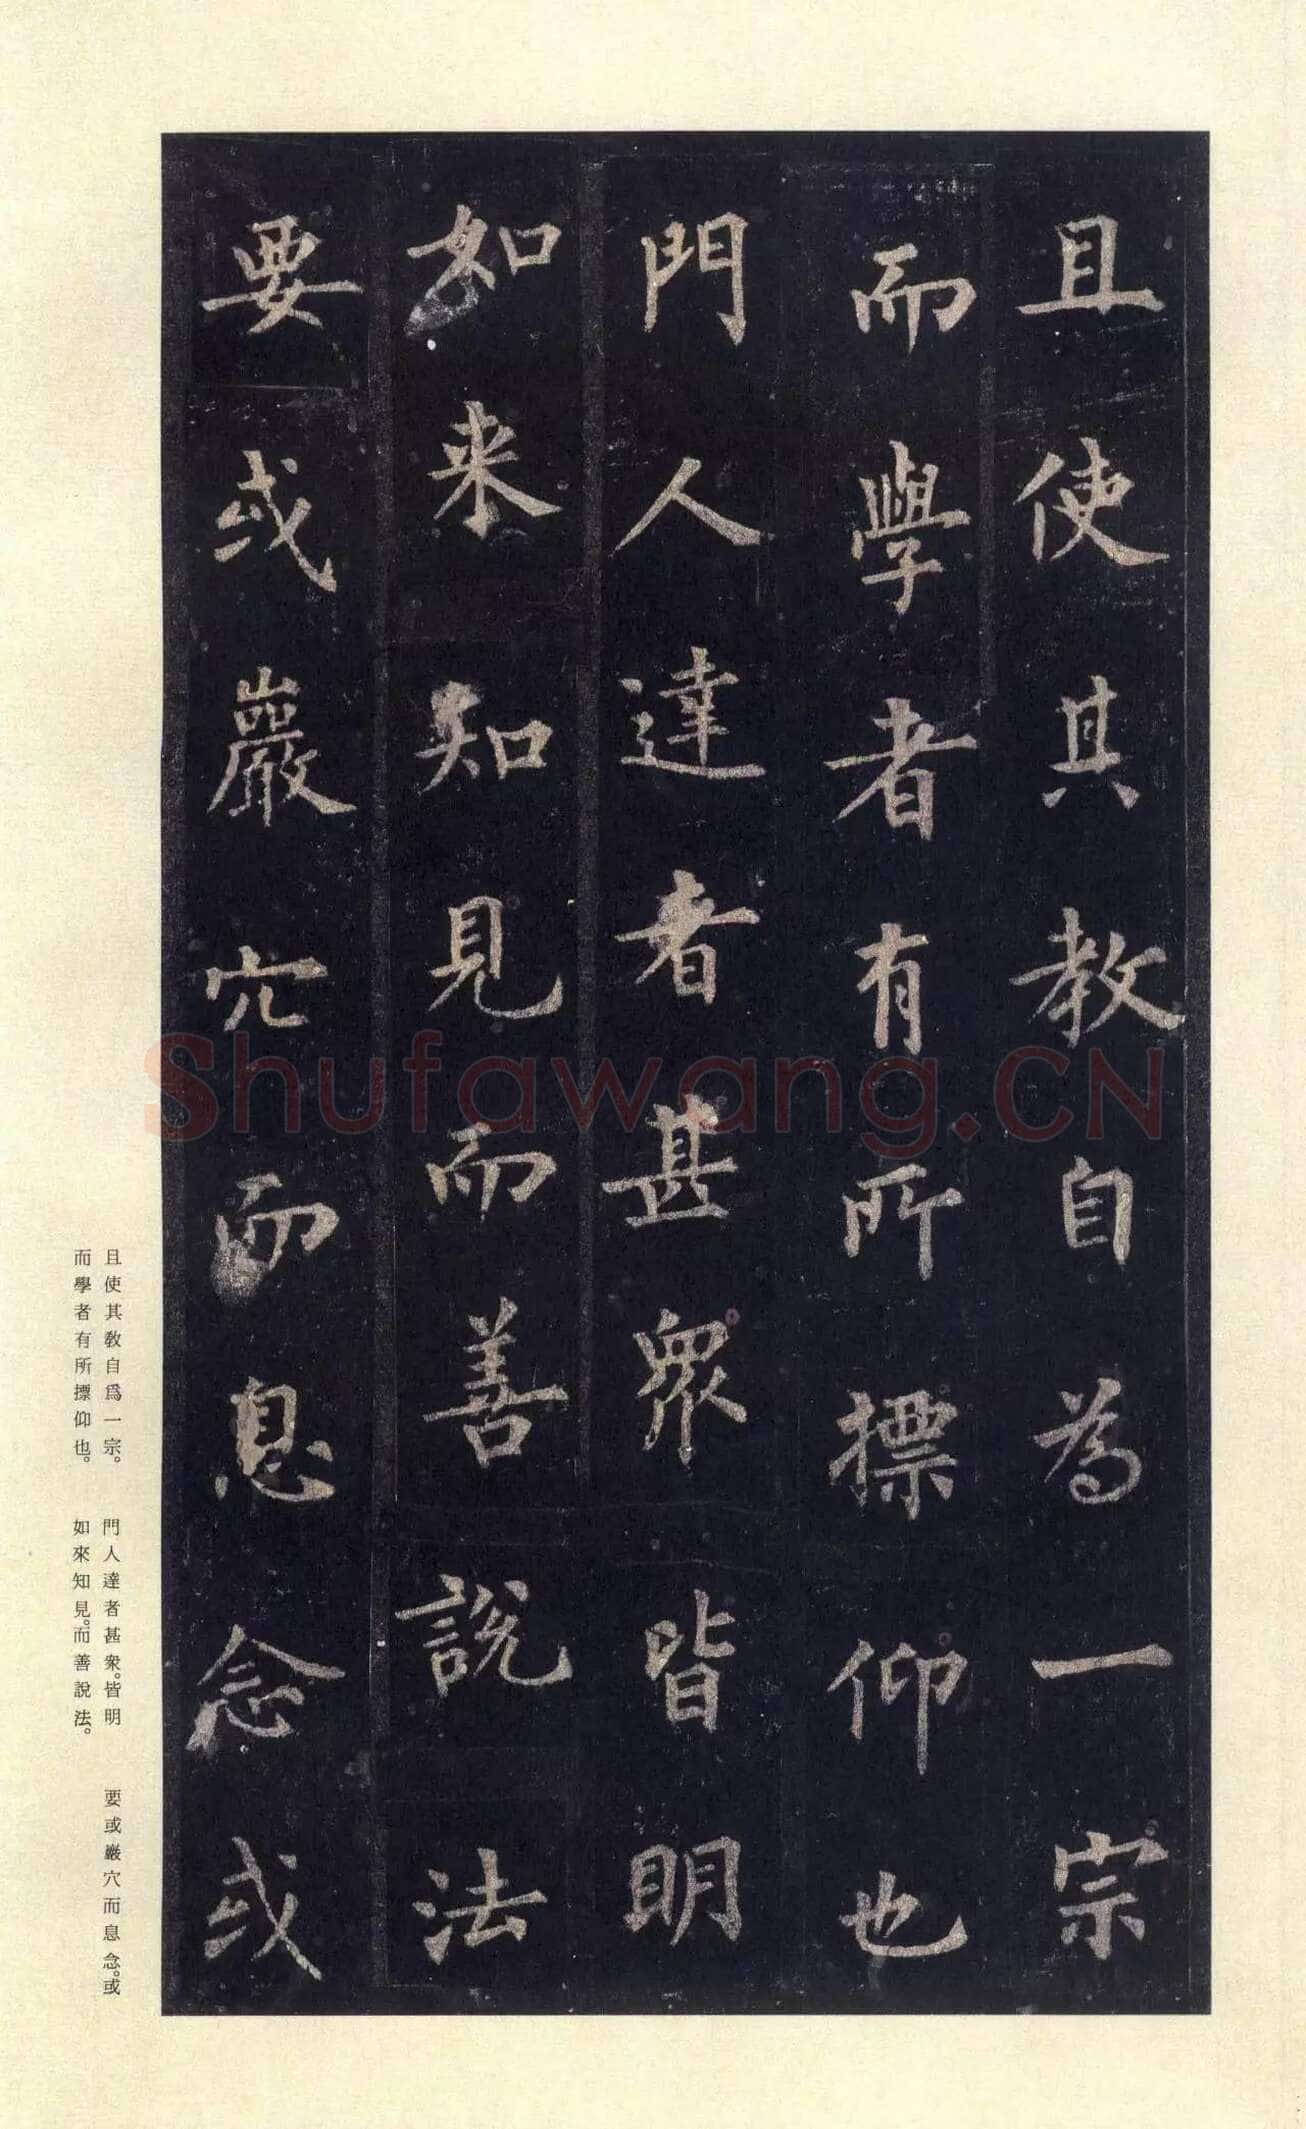 且使其教自為一宗
而學者有所摽仰也
門人達者甚眾皆明
如来知見而善説法
要或巖穴而息念或
且使其教自爲一宗。
而學者有所摽仰也。
門人達者甚衆。皆明
如來知見。而善說法。
要或巖穴而息念。或
Shufawang.CN